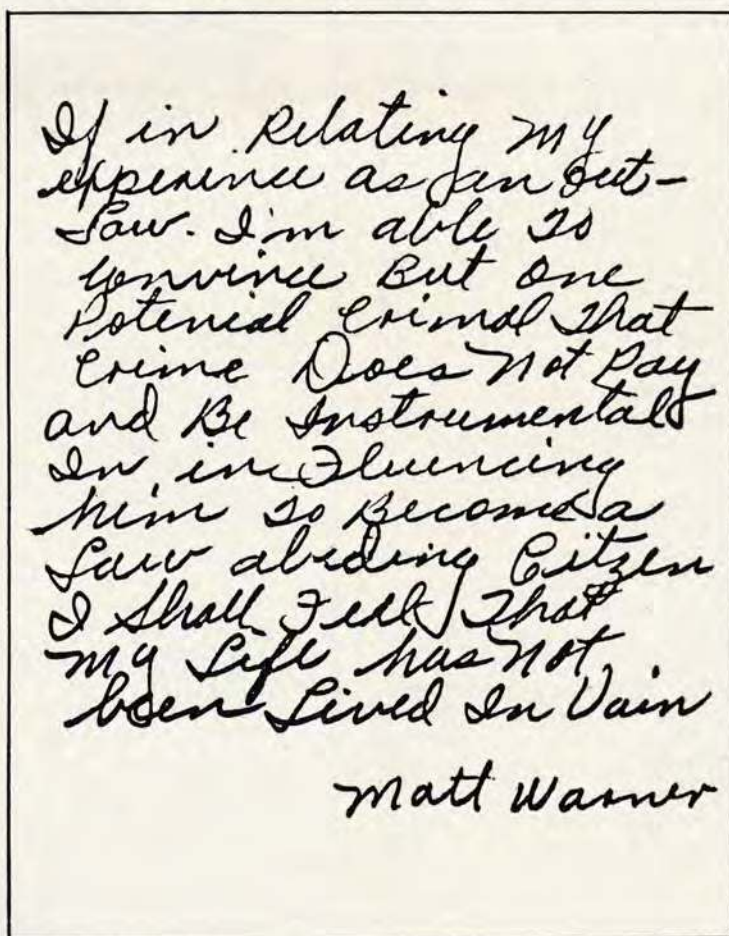 If in Relating My
experince as an out-
Law. I'm able To
Convince But one
Potenial Crimal That
Crime Does Not Pay
and Be Instrumental
In inFluencing
him To Become a
Law abiding Citzen
I Shall Feel That
My Life has Not
been Lived In Vain
Matt Warner